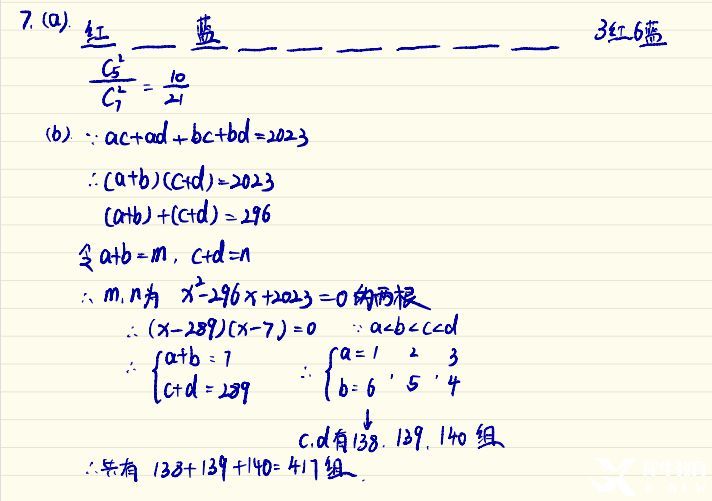 7. (a). 红 __ 蓝 __ __ __ __ __ __ __ 3红6蓝
C₅²/C₇² = 10/21
(b) ∵ ac+ad+bc+bd=2023
∴ (a+b)(c+d)=2023
(a+b)+(c+d)=296
令 a+b=m, c+d=n
∴ m,n为 x²-296x+2023=0 的两根
∴ (x-289)(x-7)=0 ∵ a<b<c<d
∴ { a+b=7 ∴ { a=1 2 3
c+d=289 b=6, 5, 4
↓
c.d有138. 139. 140 组
∴ 共有 138+139+140=417组.